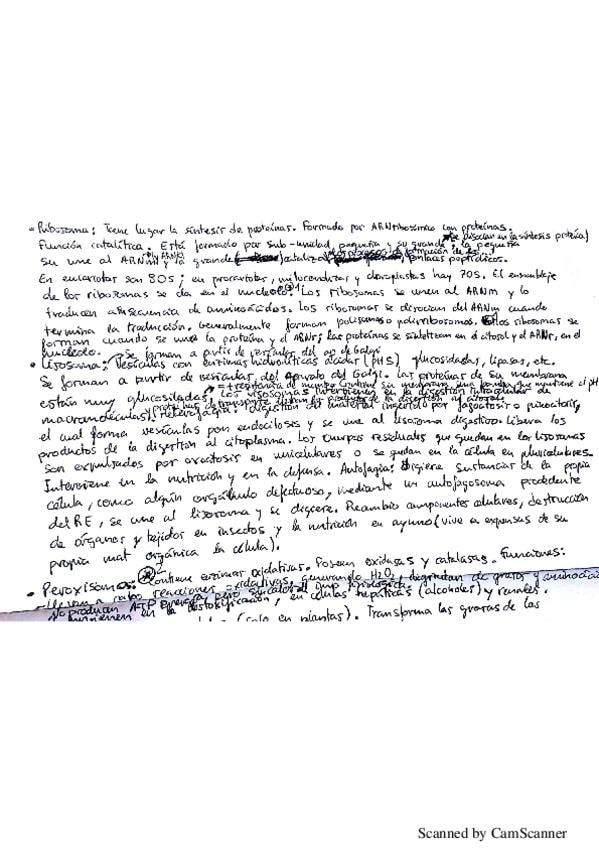 - Ribosoma: Tiene lugar la síntesis de proteínas. Formado por ARN ribosómico con proteínas.
Función catalítica. Está formado por sub-unidad pequeña y su grande; la pequeña
se disocian en la síntesis proteica)
su une al ARNm y la grande cataliza formación de los enlaces peptídicos.
En eucariotas son 80S; en procariotas, mitocondrias y cloroplastos hay 70S. El ensamblaje
de los ribosomas se da en el nucleolo. Los ribosomas se unen al ARNm y lo
traducen a secuencia de aminoácidos. Los ribosomas se disocian del ARNm cuando
termina la traducción. Generalmente forman polisomas o polirribosomas. los ribosomas se
forman cuando se une la proteína y el ARNr; las proteínas se sintetizan en el citosol y el ARNr, en el
nucleolo.
se forman a partir de vesículas del ap de Golgi
- Lisosoma: Vesículas con enzimas hidrolíticas ácidas (pH 5) glucosidasas, lipasas, etc.
Se forman a partir de vesículas del Aparato del Golgi. Las proteínas de su membrana
su membrana una bomba que mantiene el pH
están muy glucosiladas. Los lisosomas intervienen en la digestión intracelular de
proteínas de transporte los productos de la digestión al citosol
macromoléculas. Heterofagia: digestión del material ingerido por fagocitosis o pinocitosis,
el cual forma vesículas por endocitosis y se une al lisosoma digestivo. Libera los
productos de la digestión al citoplasma. Los cuerpos residuales que quedan en los lisosomas
son expulsados por exocitosis en unicelulares o se quedan en la célula en pluricelulares.
Interviene en la nutrición y en la defensa. Autofagia: Digiere sustancias de la propia
célula, como algún orgánulo defectuoso, mediante un autofagosoma procedente
del RE, se une al lisosoma y se digiere. Recambio componentes celulares, destrucción
de órganos y tejidos en insectos y la nutrición en ayuno (vive a expensas de su
propia mat orgánica la célula).
- Peroxisomas: Contiene enzimas oxidativas. Poseen oxidasas y catalasas. Funciones:
llevan a cabo reacciones oxidativas, generando H2O2, degradan ac grasos y aminoácidos
No producen ATP energía, pero sí calor
intervienen en la destoxificación, en células hepáticas (alcoholes) y renales.
(solo en plantas). Transforma las grasas de las
Scanned by CamScanner